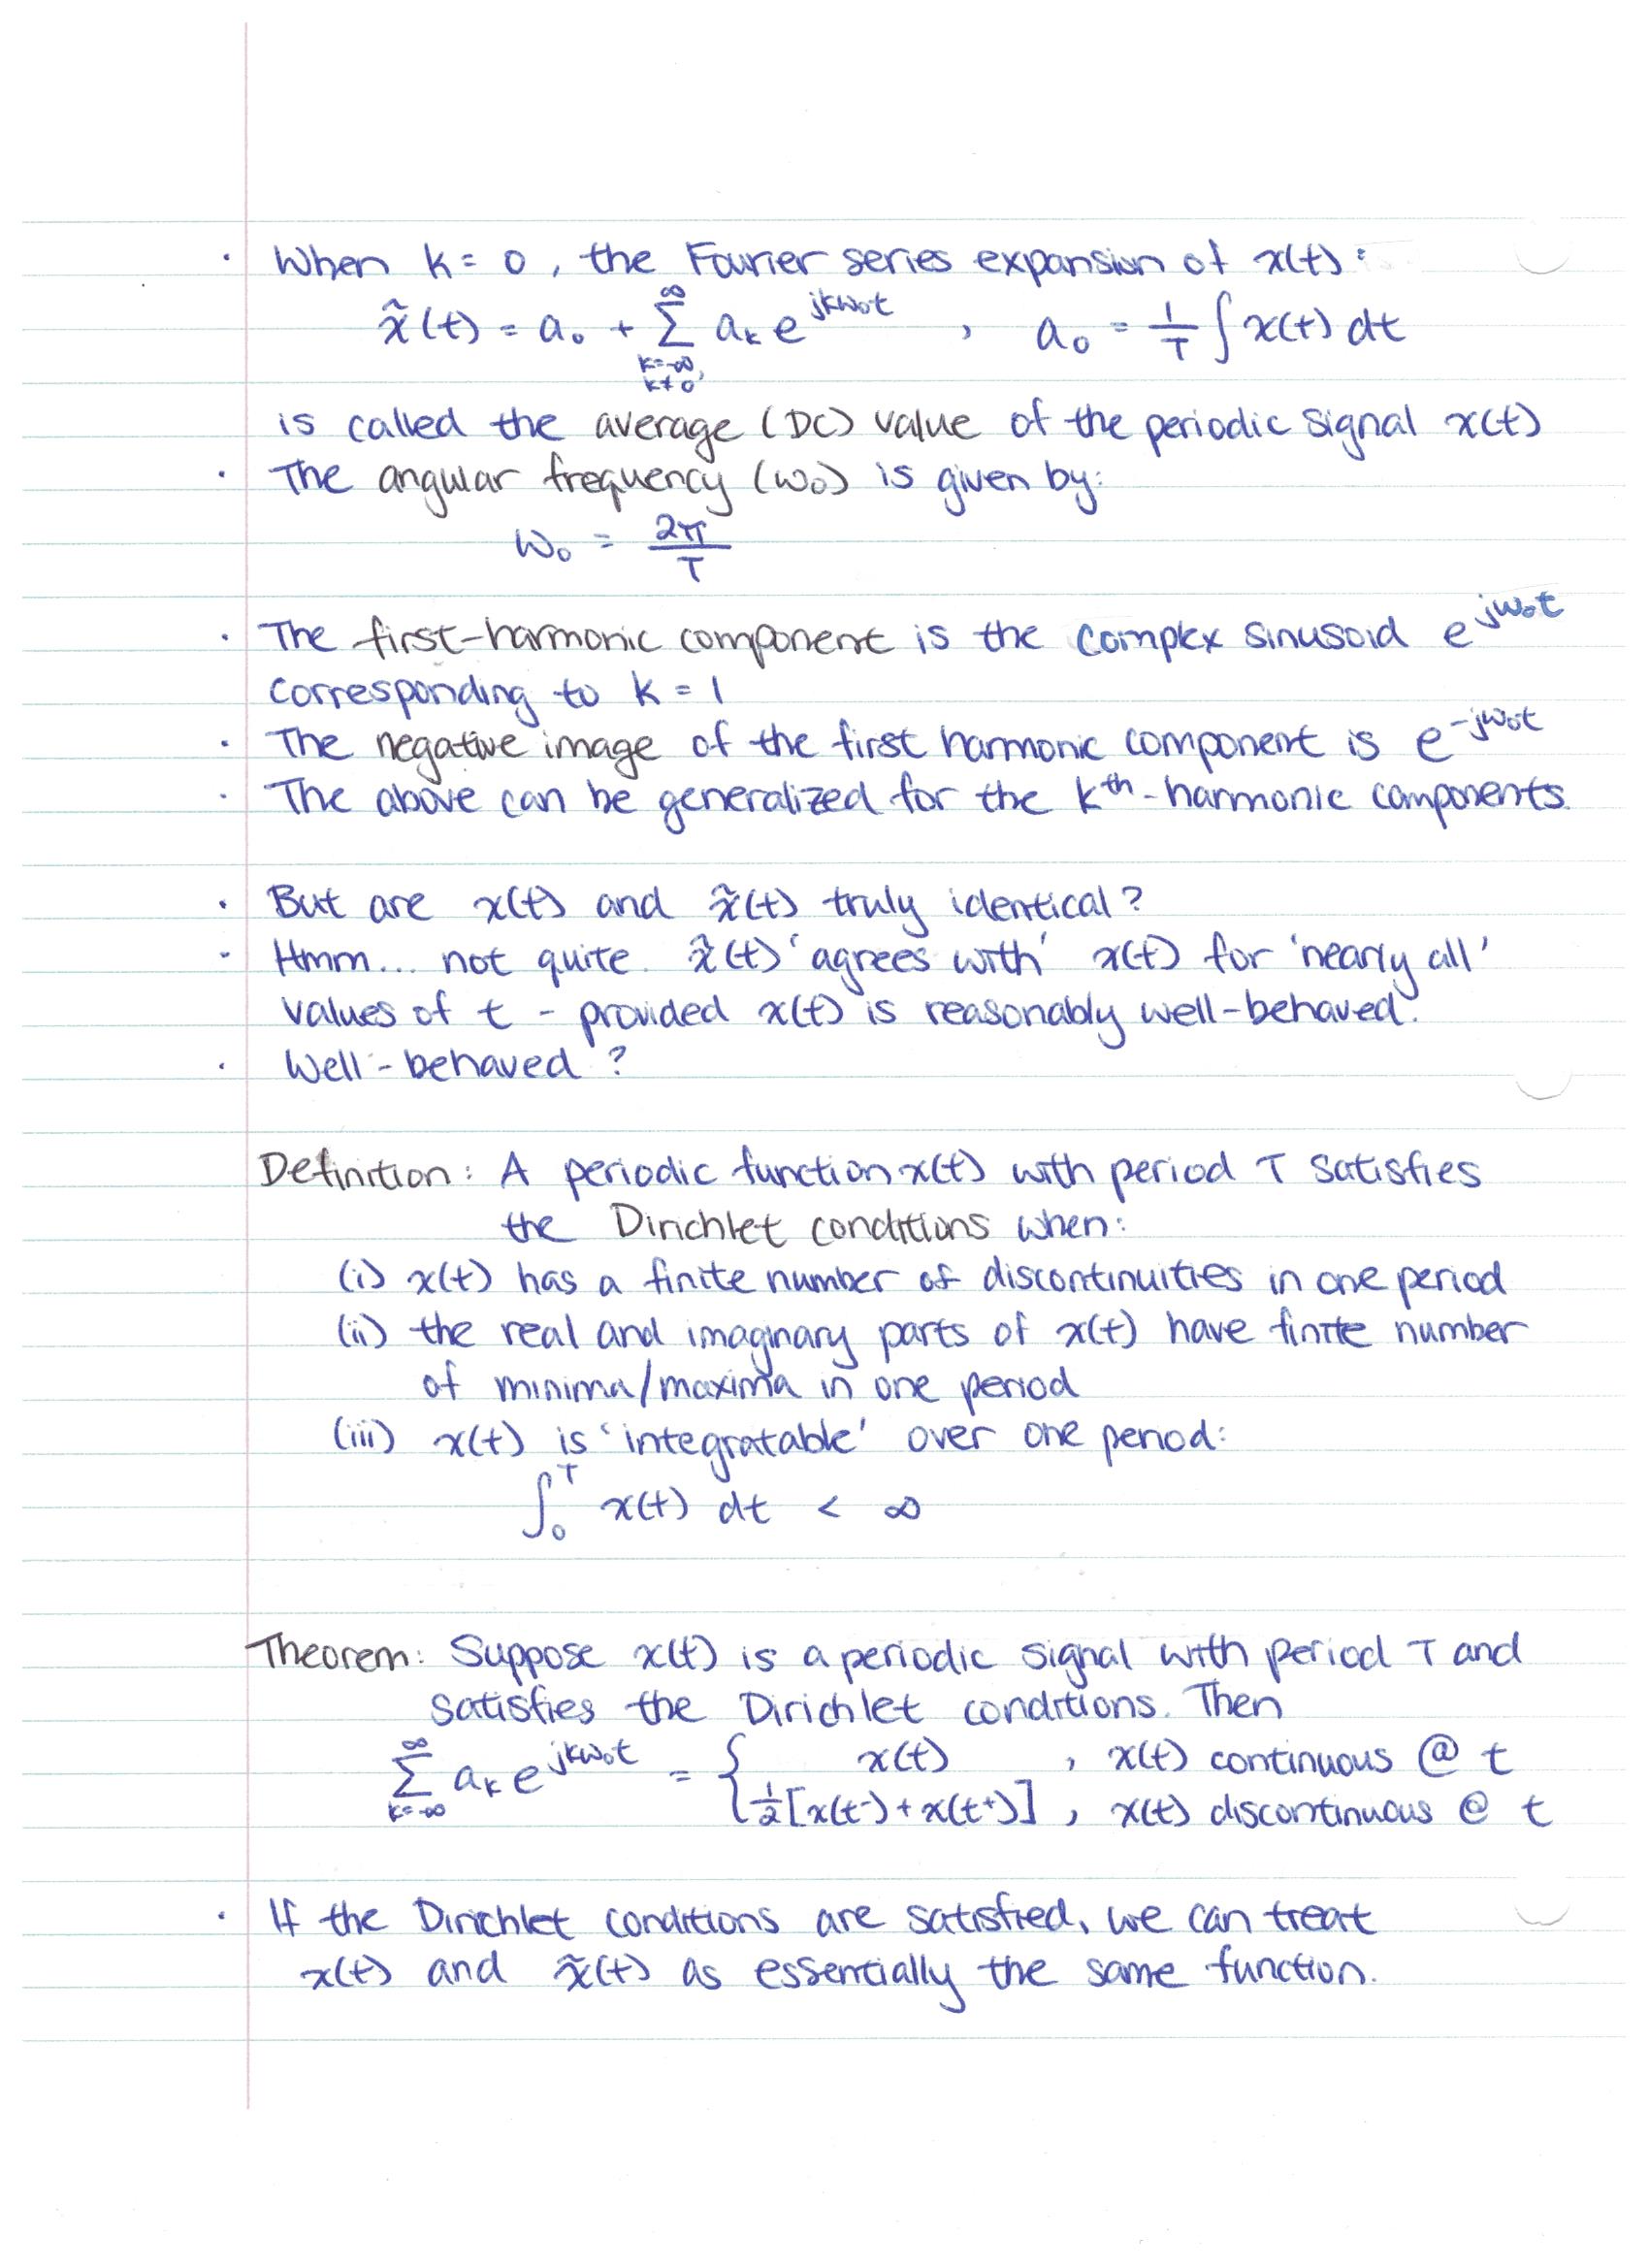 · When k = 0, the Fourier series expansion of x(t):
x̃(t) = a₀ + ∑_{k=-∞, k≠0}^{∞} aₖ e^{jkω₀t} , a₀ = 1/T ∫ x(t) dt
is called the average (DC) value of the periodic signal x(t)
· The angular frequency (ω₀) is given by:
ω₀ = 2π/T
· The first-harmonic component is the complex sinusoid e^{jω₀t}
corresponding to k = 1
· The negative image of the first harmonic component is e^{-jω₀t}
· The above can be generalized for the kᵗʰ-harmonic components.
· But are x(t) and x̃(t) truly identical?
· Hmm... not quite. x̃(t) 'agrees with' x(t) for 'nearly all'
values of t - provided x(t) is reasonably well-behaved.
· Well-behaved?
Definition: A periodic function x(t) with period T satisfies
the Dirichlet conditions when:
(i) x(t) has a finite number of discontinuities in one period
(ii) the real and imaginary parts of x(t) have finite number
of minima/maxima in one period
(iii) x(t) is 'integratable' over one period:
∫₀ᵀ x(t) dt < ∞
Theorem: Suppose x(t) is a periodic signal with period T and
satisfies the Dirichlet conditions. Then
∑_{k=-∞}^{∞} aₖ e^{jkω₀t} = { x(t) , x(t) continuous @ t
½[x(t⁻) + x(t⁺)] , x(t) discontinuous @ t
· If the Dirichlet conditions are satisfied, we can treat
x(t) and x̃(t) as essentially the same function.